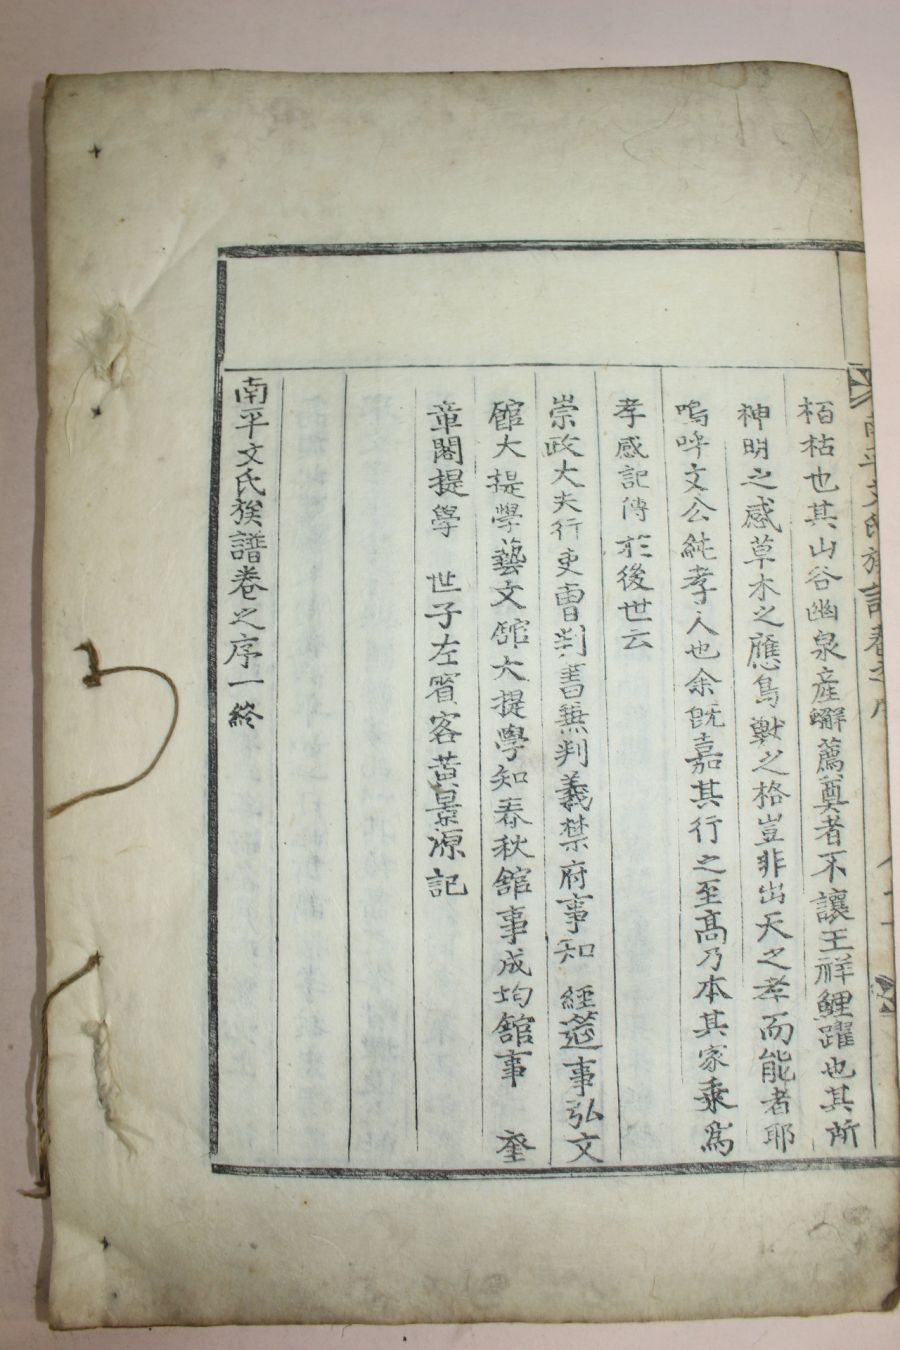 南平文氏族譜卷之序
栢枯也其山谷幽泉産蠏薦奠者不讓王祥鯉躍也其所
神明之感草木之應鳥獸之格豈非出天之孝而能者耶
嗚呼文公純孝人也余旣嘉其行之至高乃本其家乘爲
孝感記傳於後世云
崇政大夫行吏曹判書兼判義禁府事知 經筵事弘文
館大提學藝文館大提學知春秋館事成均館事 奎
章閣提學 世子左賓客黃景源記
南平文氏族譜卷之序一終